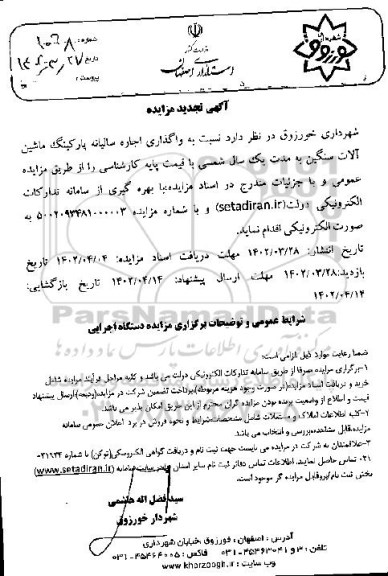 شهرداری خورزوق
وزارت کشور
استانداری اصفهان
شماره: ۱۰۶۸
تاریخ:
پیوست:
آگهی تجدید مزایده
شهرداری خورزوق در نظر دارد نسبت به واگذاری اجاره سالیانه پارکینگ ماشین
آلات سنگین به مدت یک سال شمسی با قیمت پایه کارشناسی را از طریق مزایده
عمومی و با جزئیات مندرج در اسناد مزایده،با بهره گیری از سامانه تدارکات
الکترونیکی دولت(setadiran.ir) و با شماره مزایده ۵۰۰۲۰۹۳۴۸۱۰۰۰۰۰۳ به
صورت الکترونیکی اقدام نماید.
تاریخ انتشار: ۱۴۰۲/۰۳/۲۸ مهلت دریافت اسناد مزایده: ۱۴۰۲/۰۴/۰۴ تاریخ
بازدید:۱۴۰۲/۰۳/۲۸ مهلت ارسال پیشنهاد: ۱۴۰۲/۰۴/۱۴ تاریخ بازگشایی:
۱۴۰۲/۰۴/۱۴
ParsNamadData
شرایط عمومی و توضیحات برگزاری مزایده دستگاه اجرایی
ضمنا رعایت موارد ذیل الزامی است:
۱-برگزاری مزایده صرفا از طریق سامانه تدارکات الکترونیکی دولت می باشد و کلیه مراحل فرآیند مزایده شامل
خرید و دریافت اسناد مزایده(در صورت وجود هزینه مربوطه)،پرداخت تضمین شرکت در مزایده(ودیعه)،ارسال پیشنهاد
قیمت و اطلاع از وضعیت برنده بودن مزایده گران محترم از این طریق امکان پذیر می باشد.
۲-کلیه اطلاعات املاک و مستغلات شامل مشخصات،شرایط و نحوه فروش در برد اعلان عمومی سامانه
مزایده،قابل مشاهده،بررسی و انتخاب می باشد.
۳-علاقمندان به شرکت در مزایده می بایست جهت ثبت نام و دریافت گواهی الکترونیکی(توکن) با شماره ۳۱۹۳۴-
۰۲۱ تماس حاصل نمایند. اطلاعات تماس دفاتر ثبت نام سایر استان ها،در سایت سامانه (www.setadiran.ir)
بخش ثبت نام/پروفایل مزایده گر موجود است.
سید فضل اله هاشمی
شهردار خورزوق
آدرس : اصفهان ، خورزوق ،خیابان شهرداری
تلفن : ۳ و ۴۵۴۶۳۰۴۱-۰۳۱ فاکس : ۴۵۴۶۴۰۰۵-۰۳۱
وب سایت : www.khorzoogh.ir